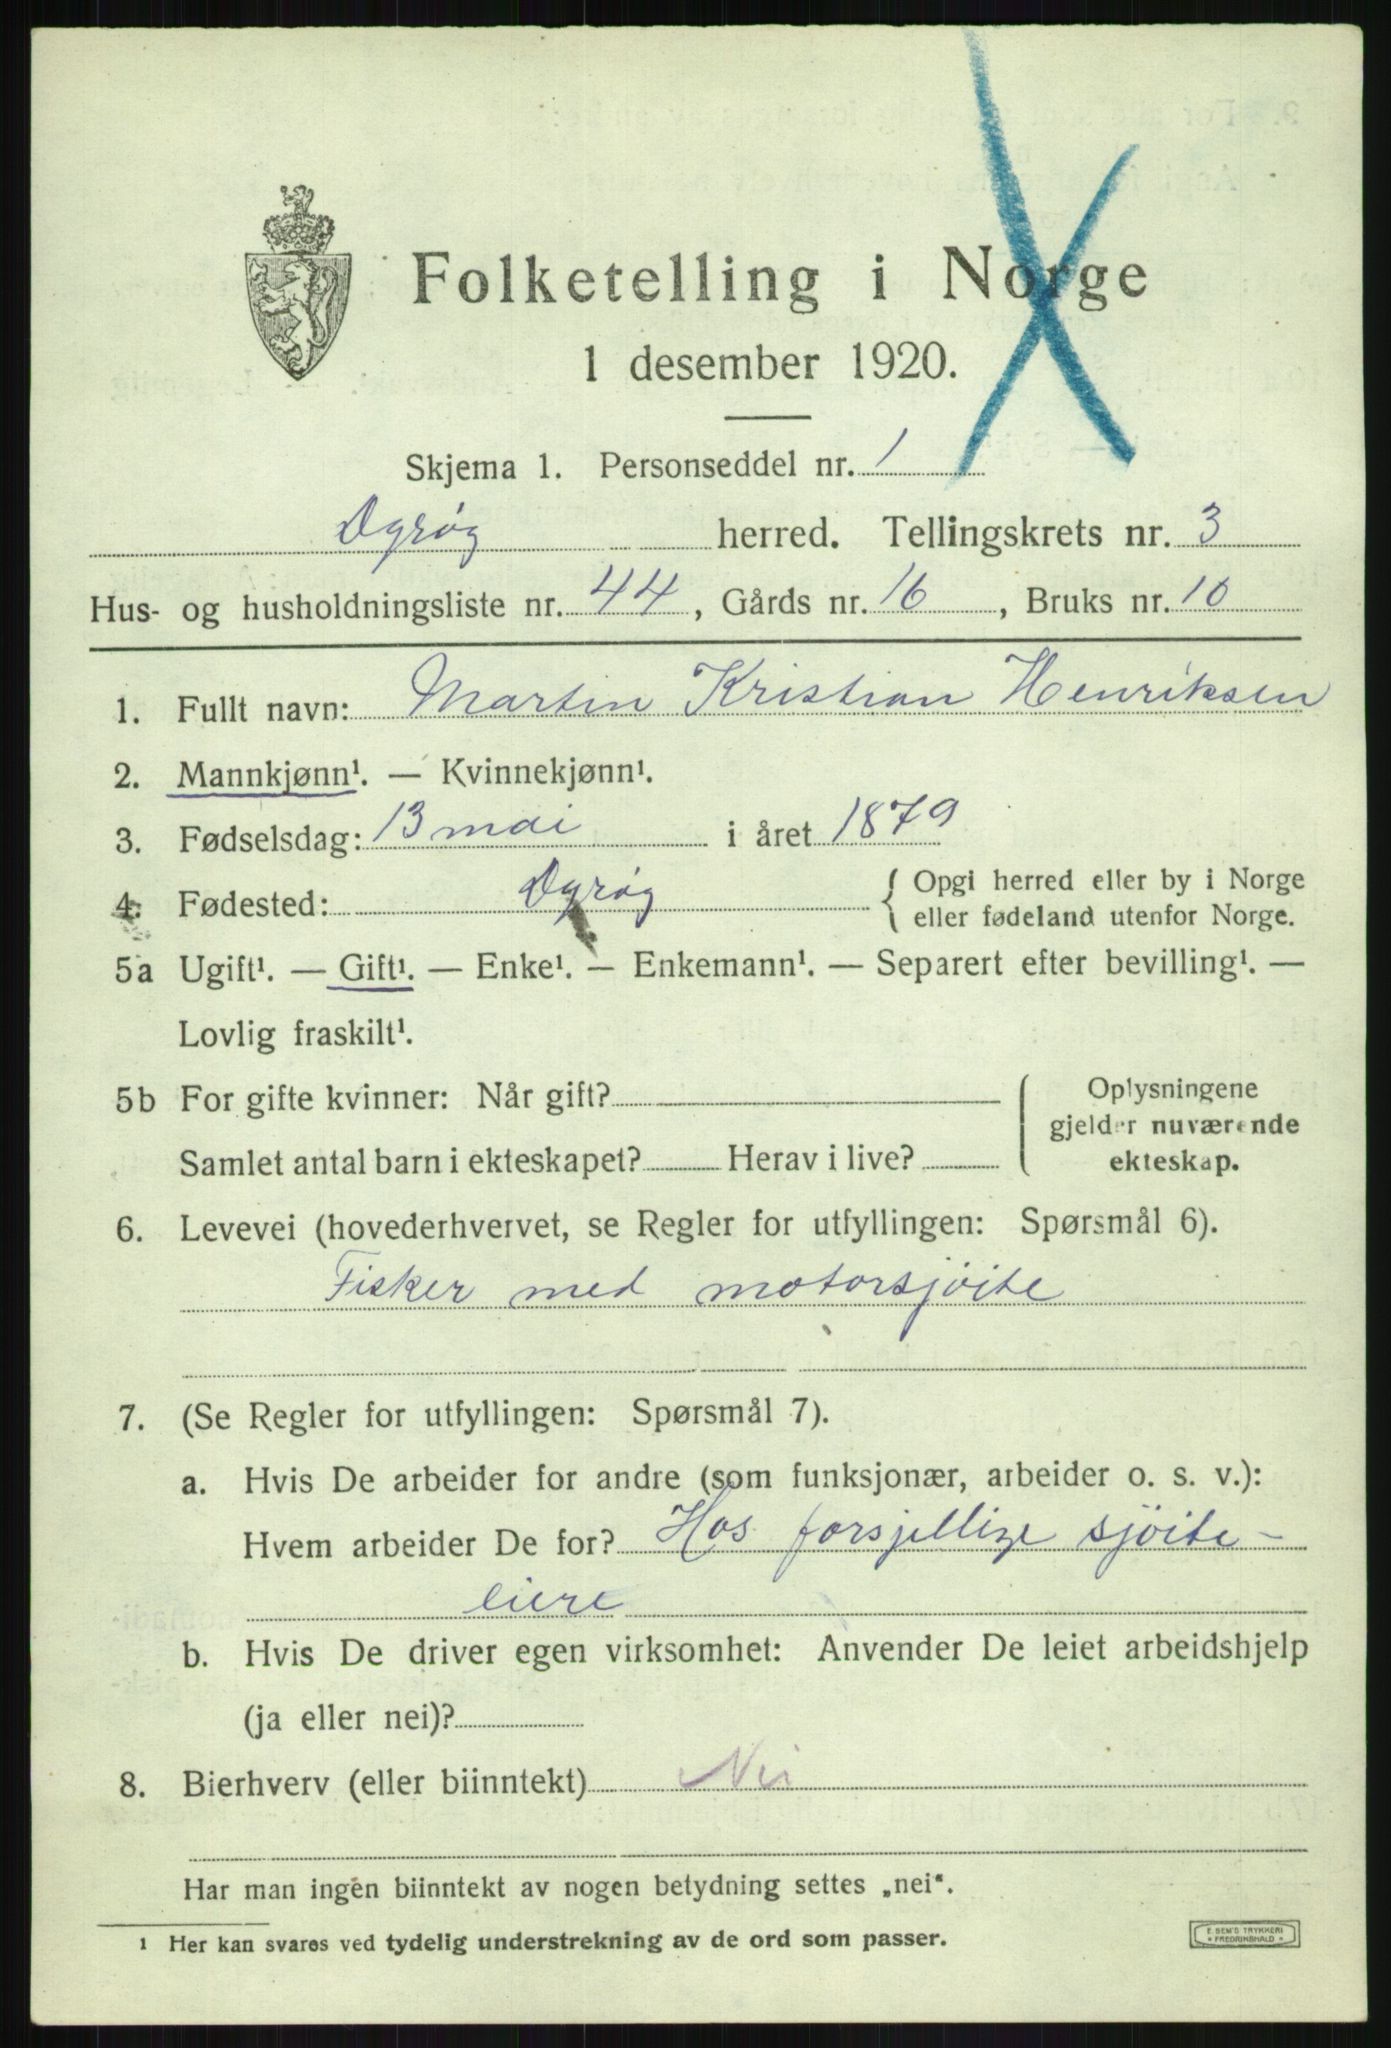 Folketelling i Norge
1 desember 1920.
Skjema 1. Personseddel nr. 1
Dyrøy herred. Tellingskrets nr. 3
Hus- og husholdningsliste nr. 44, Gårds nr. 16, Bruks nr. 10
1. Fullt navn: Martin Kristian Henriksen
2. Mannkjønn¹. — Kvinnekjønn¹.
3. Fødselsdag: 13 mai i året 1879
4. Fødested: Dyrøy { Opgi herred eller by i Norge
eller fødeland utenfor Norge.
5a Ugift¹. — Gift¹. — Enke¹. — Enkemann¹. — Separert efter bevilling¹. —
Lovlig fraskilt¹.
5b For gifte kvinner: Når gift?
Samlet antal barn i ekteskapet? Herav i live?
Oplysningene
gjelder nuværende
ekteskap.
6. Levevei (hovederhvervet, se Regler for utfyllingen: Spørsmål 6).
Fisker med motorsjöite
7. (Se Regler for utfyllingen: Spørsmål 7).
a. Hvis De arbeider for andre (som funksjonær, arbeider o. s. v.):
Hvem arbeider De for? Hos forsjellige sjöite-
eiere
b. Hvis De driver egen virksomhet: Anvender De leiet arbeidshjelp
(ja eller nei)?
8. Bierhverv (eller biinntekt) Nei
Har man ingen biinntekt av nogen betydning settes „nei“.
¹ Her kan svares ved tydelig understrekning av de ord som passer.
E. SEM'S TRYKKERI
* FREDRIKSHALD *